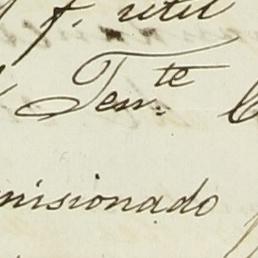 f. util
Ten.te
misionado